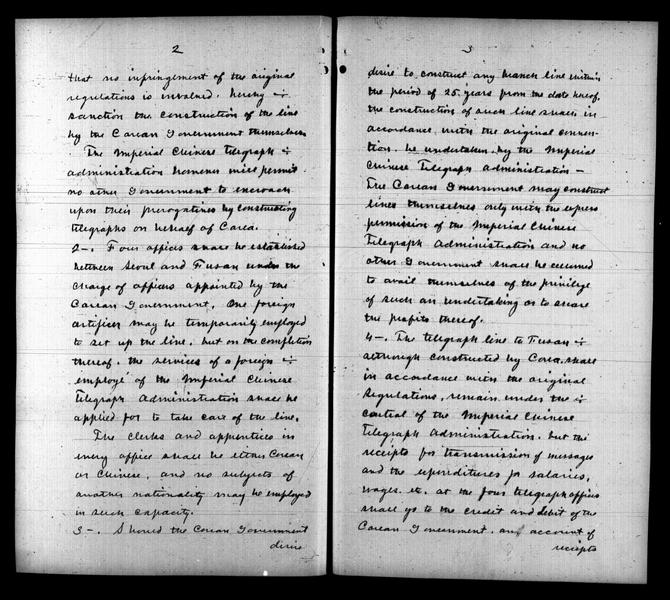 2
that no infringement of the original
regulations is involved. hereby ÷
sanction the construction of the line
by the Corean Government themselves
. The Imperial Chinese Telegraph ÷
administration however will permit
no other Government to encroach
upon their prerogatives by constructing
telegraphs on behalf of Corea.
2-. Four offices shall be established
between Seoul and Fusan under the
charge of officers appointed by the
Corean Government. One foreign
artificer may be temporarily employed
to set up the line, but on the completion
thereof. the services of a foreign ÷
employé of the Imperial Chinese
Telegraph Administration shall be
applied for to take care of the line.
The clerks and apprentices in
every office shall be either Corean
or Chinese, and no subjects of
another nationality may be employed
in such capacity.
3-. Should the Corean Government
desire
3
desire to construct any branch line within
the period of 25 years from the date hereof,
the construction of such line shall in
accordance with the original conven-
tion. be undertaken by the Imperial
Chinese Telegraph administration —
The Corean Government may construct
lines themselves only with the express
permission of the Imperial Chinese
Telegraph Administration and no
other Government shall be
to avail themselves of the privilege
of such an undertaking or to share
the profits thereof.
4-. The telegraph line to Fusan ÷
although constructed by Corea shall
in accordance with the original
Regulations, remain under the ÷
control of the Imperial Chinese
Telegraph Administration. but the
receipts for transmission of messages
and the expenditures for salaries,
wages. etc. at the four telegraph offices
shall go to the credit and debit of the
Corean Government. an account of
receipts